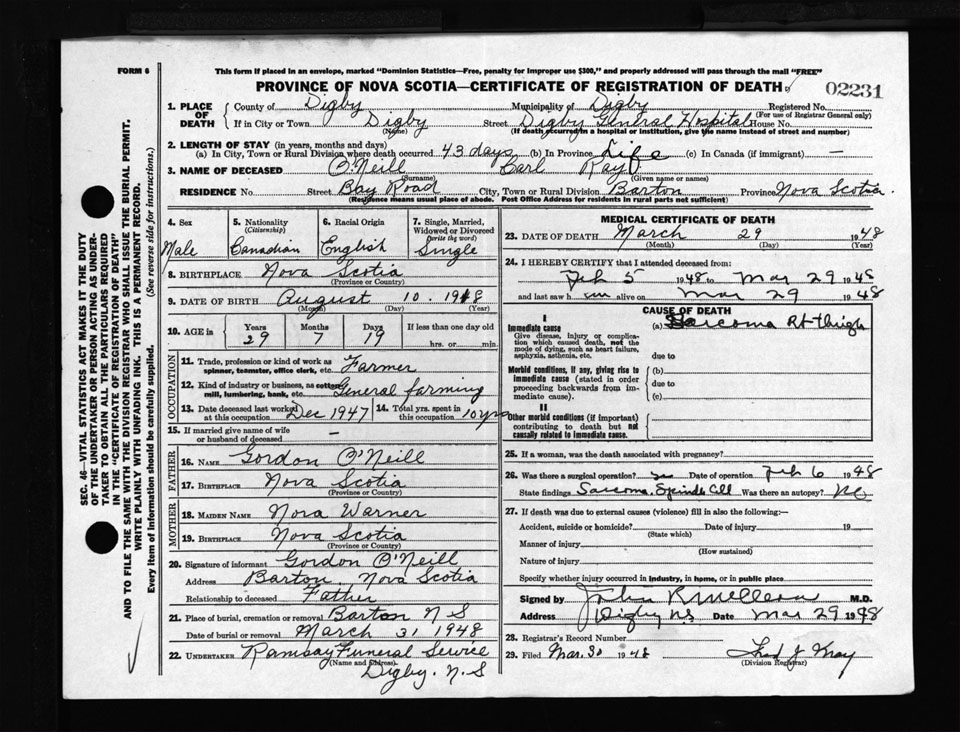 FORM 6
This form if placed in an envelope, marked "Dominion Statistics—Free, penalty for improper use $300," and properly addressed will pass through the mail "FREE"
PROVINCE OF NOVA SCOTIA—CERTIFICATE OF REGISTRATION OF DEATH
02231
1. PLACE OF DEATH
County of Digby Municipality of Digby Registered No.
(For use of Registrar General only)
If in City or Town Digby Street Digby General Hospital House No.
(Name) (If death occurred in a hospital or institution, give the name instead of street and number)
2. LENGTH OF STAY (in years, months and days)
(a) In City, Town or Rural Division where death occurred 43 days (b) In Province Life (c) In Canada (if immigrant) —
3. NAME OF DECEASED O'Neill Carl Ray
(Surname) (Given name or names)
RESIDENCE No. Street Bay Road City, Town or Rural Division Barton Province Nova Scotia.
(Residence means usual place of abode. Post Office Address for residents in rural parts not sufficient)
4. Sex Male
5. Nationality (Citizenship) Canadian
6. Racial Origin English
7. Single, Married, Widowed or Divorced (write the word) Single
8. BIRTHPLACE Nova Scotia
(Province or Country)
9. DATE OF BIRTH August 10. 1918
(Month) (Day) (Year)
10. AGE in Years 29 Months 7 Days 19 If less than one day old hrs. or min.
OCCUPATION
11. Trade, profession or kind of work as spinner, teamster, office clerk, etc. Farmer
12. Kind of industry or business, as cotton mill, lumbering, bank, etc. General farming
13. Date deceased last worked at this occupation Dec 1947 14. Total yrs. spent in this occupation 10 yrs
15. If married give name of wife or husband of deceased —
FATHER
16. NAME Gordon O'Neill
17. BIRTHPLACE Nova Scotia
(Province or Country)
MOTHER
18. MAIDEN NAME Nora Warner
19. BIRTHPLACE Nova Scotia
(Province or Country)
20. Signature of informant Gordon O'Neill
Address Barton, Nova Scotia
Relationship to deceased Father
21. Place of burial, cremation or removal Barton N S
Date of burial or removal March 31 1948
22. UNDERTAKER Ramsay Funeral Service
(Name and address)
Digby. N.S
MEDICAL CERTIFICATE OF DEATH
23. DATE OF DEATH March 29 1948
(Month) (Day) (Year)
24. I HEREBY CERTIFY that I attended deceased from:
Feb 5 1948 to Mar 29 1948
and last saw him alive on Mar 29 1948
CAUSE OF DEATH
I
Immediate cause (a) Sarcoma Rt thigh
Give disease, injury or complication which caused death, not the mode of dying, such as heart failure, asphyxia, asthenia, etc.
due to
Morbid conditions, if any, giving rise to immediate cause (stated in order proceeding backwards from immediate cause).
(b)
due to
(c)
II
Other morbid conditions (if important) contributing to death but not causally related to immediate cause.
25. If a woman, was the death associated with pregnancy?
26. Was there a surgical operation? yes Date of operation Feb 6 1948
State findings Sarcoma. Spindle Cell Was there an autopsy? No
27. If death was due to external causes (violence) fill in also the following:—
Accident, suicide or homicide? Date of injury 19
(State which)
Manner of injury
(How sustained)
Nature of injury
Specify whether injury occurred in industry, in home, or in public place
Signed by John R M.D.
Address Digby NS Date Mar 29 1948
28. Registrar's Record Number
29. Filed Mar. 30 1948
(Division Registrar)
SEC. 46—VITAL STATISTICS ACT MAKES IT THE DUTY
OF THE UNDERTAKER OR PERSON ACTING AS UNDER-
TAKER TO OBTAIN ALL THE PARTICULARS REQUIRED
IN THE "CERTIFICATE OF REGISTRATION OF DEATH"
AND TO FILE THE SAME WITH THE DIVISION REGISTRAR WHO SHALL ISSUE THE BURIAL PERMIT.
WRITE PLAINLY WITH UNFADING INK. THIS IS A PERMANENT RECORD.
Every item of information should be carefully supplied. (See reverse side for instructions.)